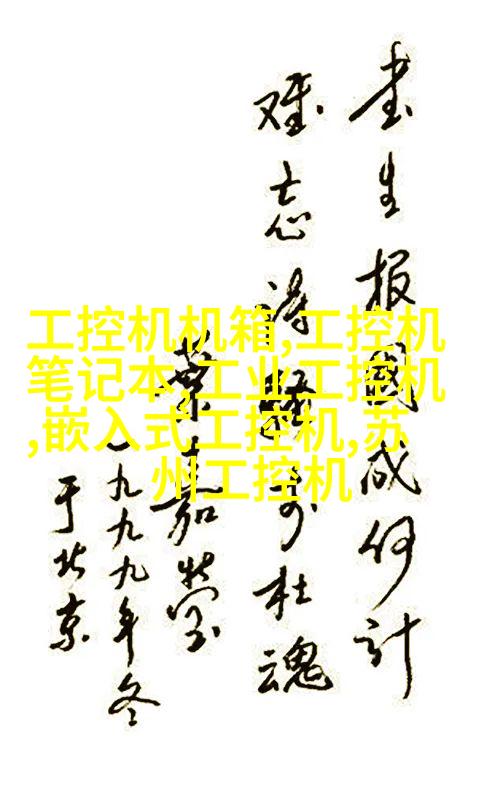 工控机机箱,工控机
笔记本,工业工控机
,嵌入式工控机,苏
州工控机
书生报國成何計
难忘诗骚李杜魂
葉嘉莹
一九九九年冬
于北京